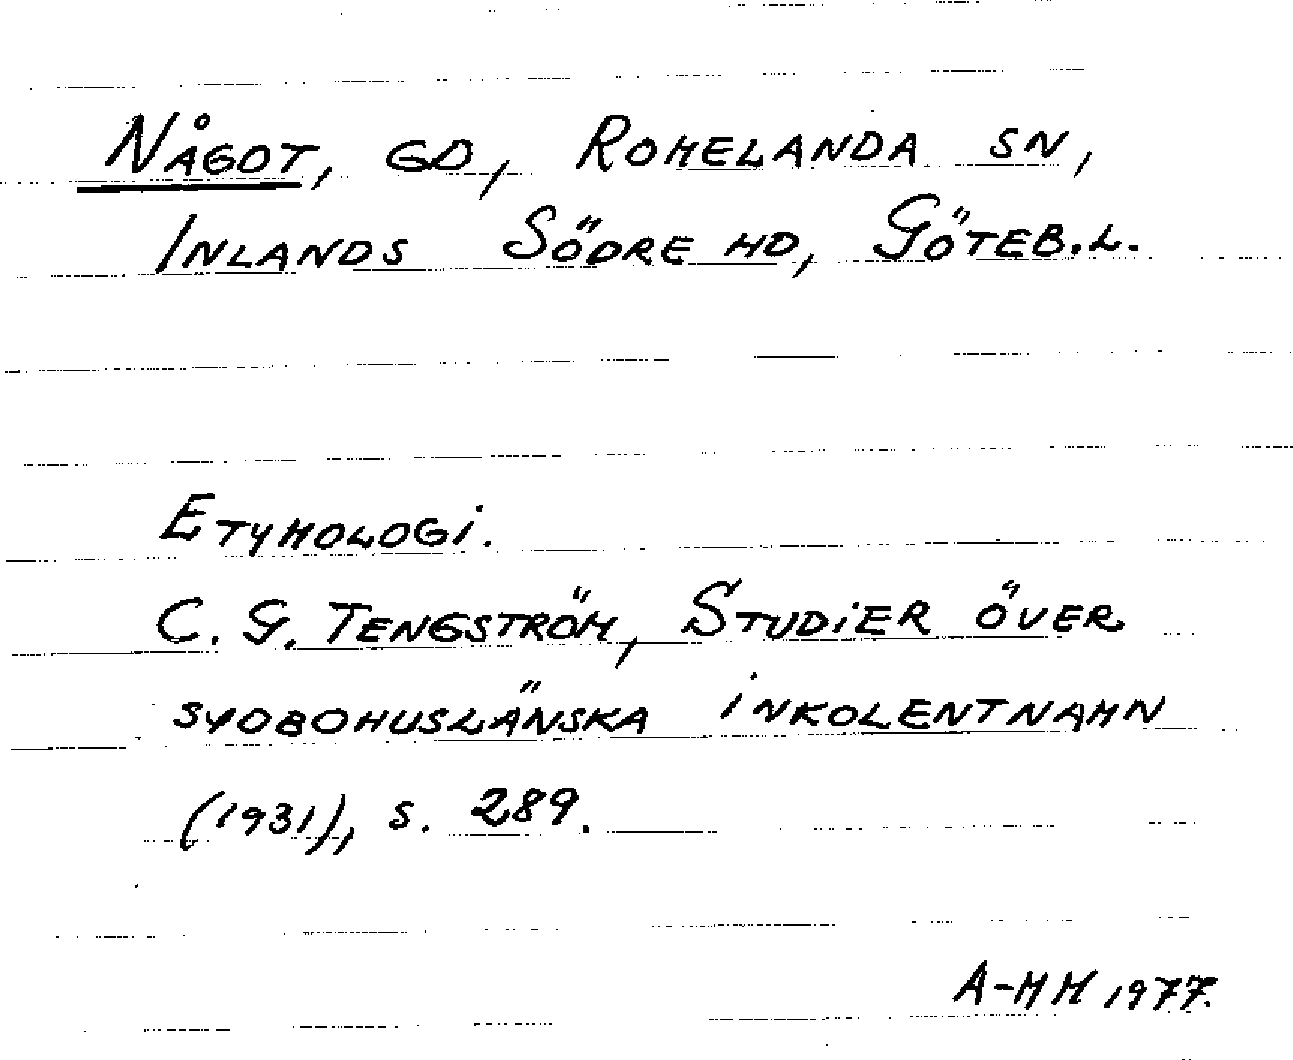 Något, gd, Romelanda sn,
Inlands Södre hd, Göteb.l.
Etymologi.
C. G. Tengström, Studier över
sydbohuslänska inkolentnamn
(1931), s. 289.
A-MH 1977.